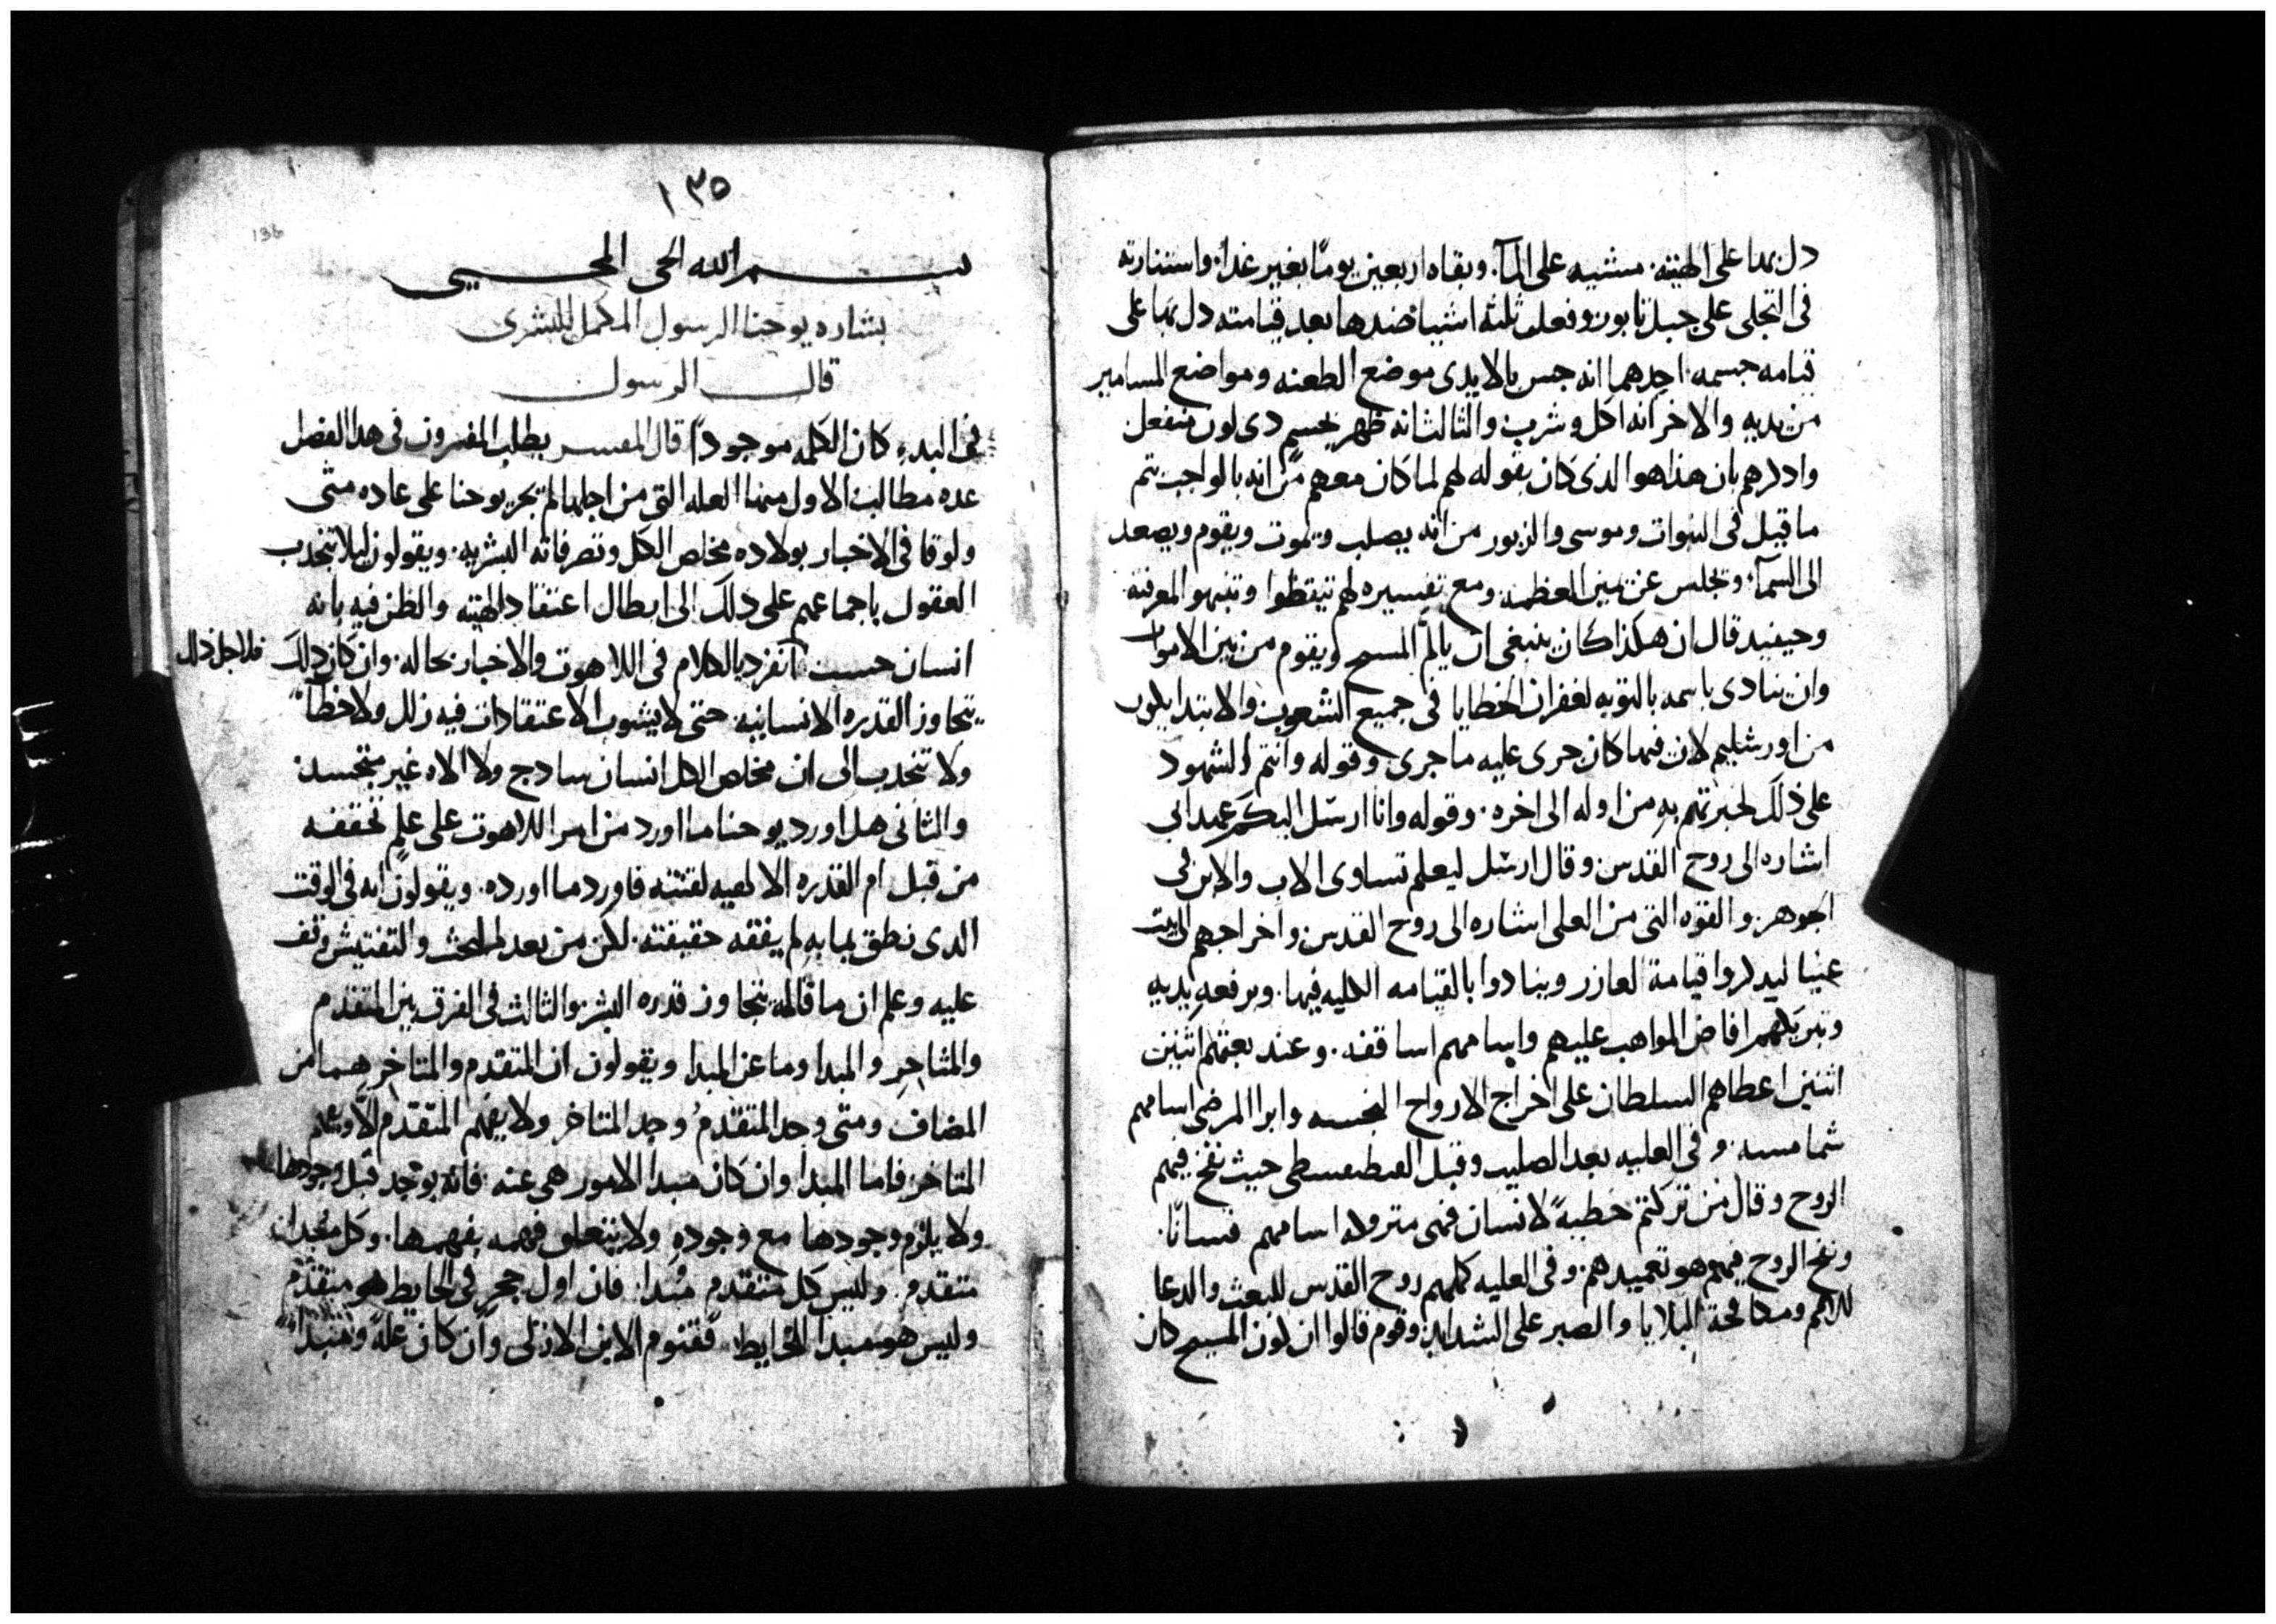 دل بها على الهيته. مشيه على المآ. وبقاه اربعين يومًا بغير غدا. واستنارته
فى التجلى على جبل تابور وفعله ثلثه اشيا ضدها بعد قيامته دل بها على
قيامه جسمه. احدهما انه جس بالايدى موضع الطعنه ومواضع المسامير
من يديه والاخر انه اكل وشرب والثالث انه ظهر بجسم دى لون منفعل
وادكرهم بان هذا هو الذى كان يقوله لهم لما كان معهم من انه بالواجب يتم
ما قيل فى النبوات وموسى والزبور من انه يصلب ويموت ويقوم ويصعد
الى السمآ. ويجلس عن يمين العظمه. ومع تفسيره لهم تيقظوا وتنبهوا لمعرفته.
وحينيد قال ان هكذا كان ينبغى ان يالم المسيح ويقوم من بين الاموات
وان ينادى باسمه بالتوبه لغفران الخطايا فى جميع الشعوب والابتدا يكون
من اورشليم لان فيها كان جرى عليه ما جرى وقوله وانتم الشهود
على ذلك لخبرتهم به من اوله الى اخره. وقوله وانا ارسل اليكم عهد ابى
اشاره الى روح القدس وقال ارسل ليعلم تساوى الاب والابن فى
الجوهر. والقوه التى من العلى اشاره الى روح القدس واخراجهم الى بيت
عنيا ليدكروا قيامة لعازر وينادوا بالقيامه الكليه فيها. وبرفعه يديه
وتبريكهم افاض المواهب عليهم واسامهم اساقفه. وعند بعثهم اثنين
اثنين اعطاهم السلطان على اخراج الارواح النجسه وابرا المرضى اسامهم
شمامسه. وفى العليه بعد الصليب وقبل الفنطقسطى حيث نفخ فيهم
الروح وقال من تركتم خطيه لانسان فهى متروكه اسامهم قسانًا.
ونفخ الروح فيهم هو تعميدهم. وفى العليه كملهم روح القدس للبعث والدعا
للامم ومكافحة البلايا والصبر على الشدايد. وقوم قالوا ان لون المسيح كان
١٣٥
136
بسم الله الحى المحيى
بشاره يوحنا الرسول المكمل للبشرى
قال الرسول
فى البدء كان الكلمه موجودًا قال المفسر يطلب المفسرون فى هدا الفصل
عده مطالب الاول منها العله التى من اجلها لم يجر يوحنا على عاده متى
ولوقا فى الاخبار بولاده مخلص الكل وتصرفاته البشريه. ويقولون ليلا تنجدب
العقول باجماعهم على دلك الى ابطال اعتقاد الهيته والظن فيه بانه
انسان حسب انفرد بالكلام فى اللاهوت والاخبار بحاله. وان كان دلك
فلاجل ذلك
يتجاوز القدره الانسانيه. حتى لا يشوب الاعتقادات فيه زلل ولا خطآ
ولا تنجدب الى ان مخلص الكل انسان سادج ولا الاه غير متجسد.
والثانى هل اورد يوحنا ما اورد من امر اللاهوت على علم تحققه
من قبل ام القدره الالهيه لقنته فاورد ما اورده. ويقولون انه فى الوقت
الدى نطق بما به لم يفقه حقيقته. لكن من بعد البحث والتفتيش وقف
عليه وعلم ان ما قاله يتجاوز قدره البشر والثالث فى الفرق بين المتقدم
والمتاخر والمبدا وما عن المبدا ويقولون ان المتقدم والمتاخر هما من
المضاف ومتى وجد المتقدم وجد المتاخر ولا يفهم المتقدم الا ويفهم
المتاخر. فاما المبدا وان كان مبدا الامور هى عنه. فانه يوجد قبل وجودها
ولا يلزم وجودها مع وجوده ولا يتعلق فهمه بفهمها. وكل مبدا
متقدم. وليس كل متقدم مبدا. فان اول حجر فى الحايط هو متقدم
وليس هو مبدا الحايط. فقنوم الابن الازلى وان كان علة ومبدا